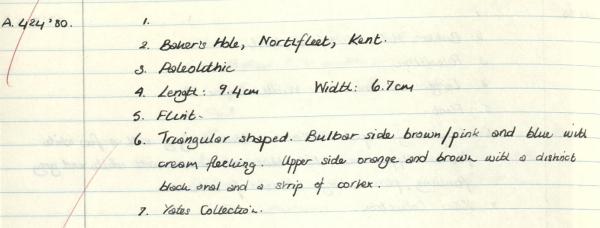 A.424'80. 1.
2. Baker's Hole, Northfleet, Kent.
3. Paleolithic
4. Length: 9.4cm Width: 6.7cm
5. Flint.
6. Triangular shaped. Bulbar side brown/pink and blue with
cream flecking. Upper side orange and brown with a distinct
black oval and a strip of cortex.
7. Yates Collection.